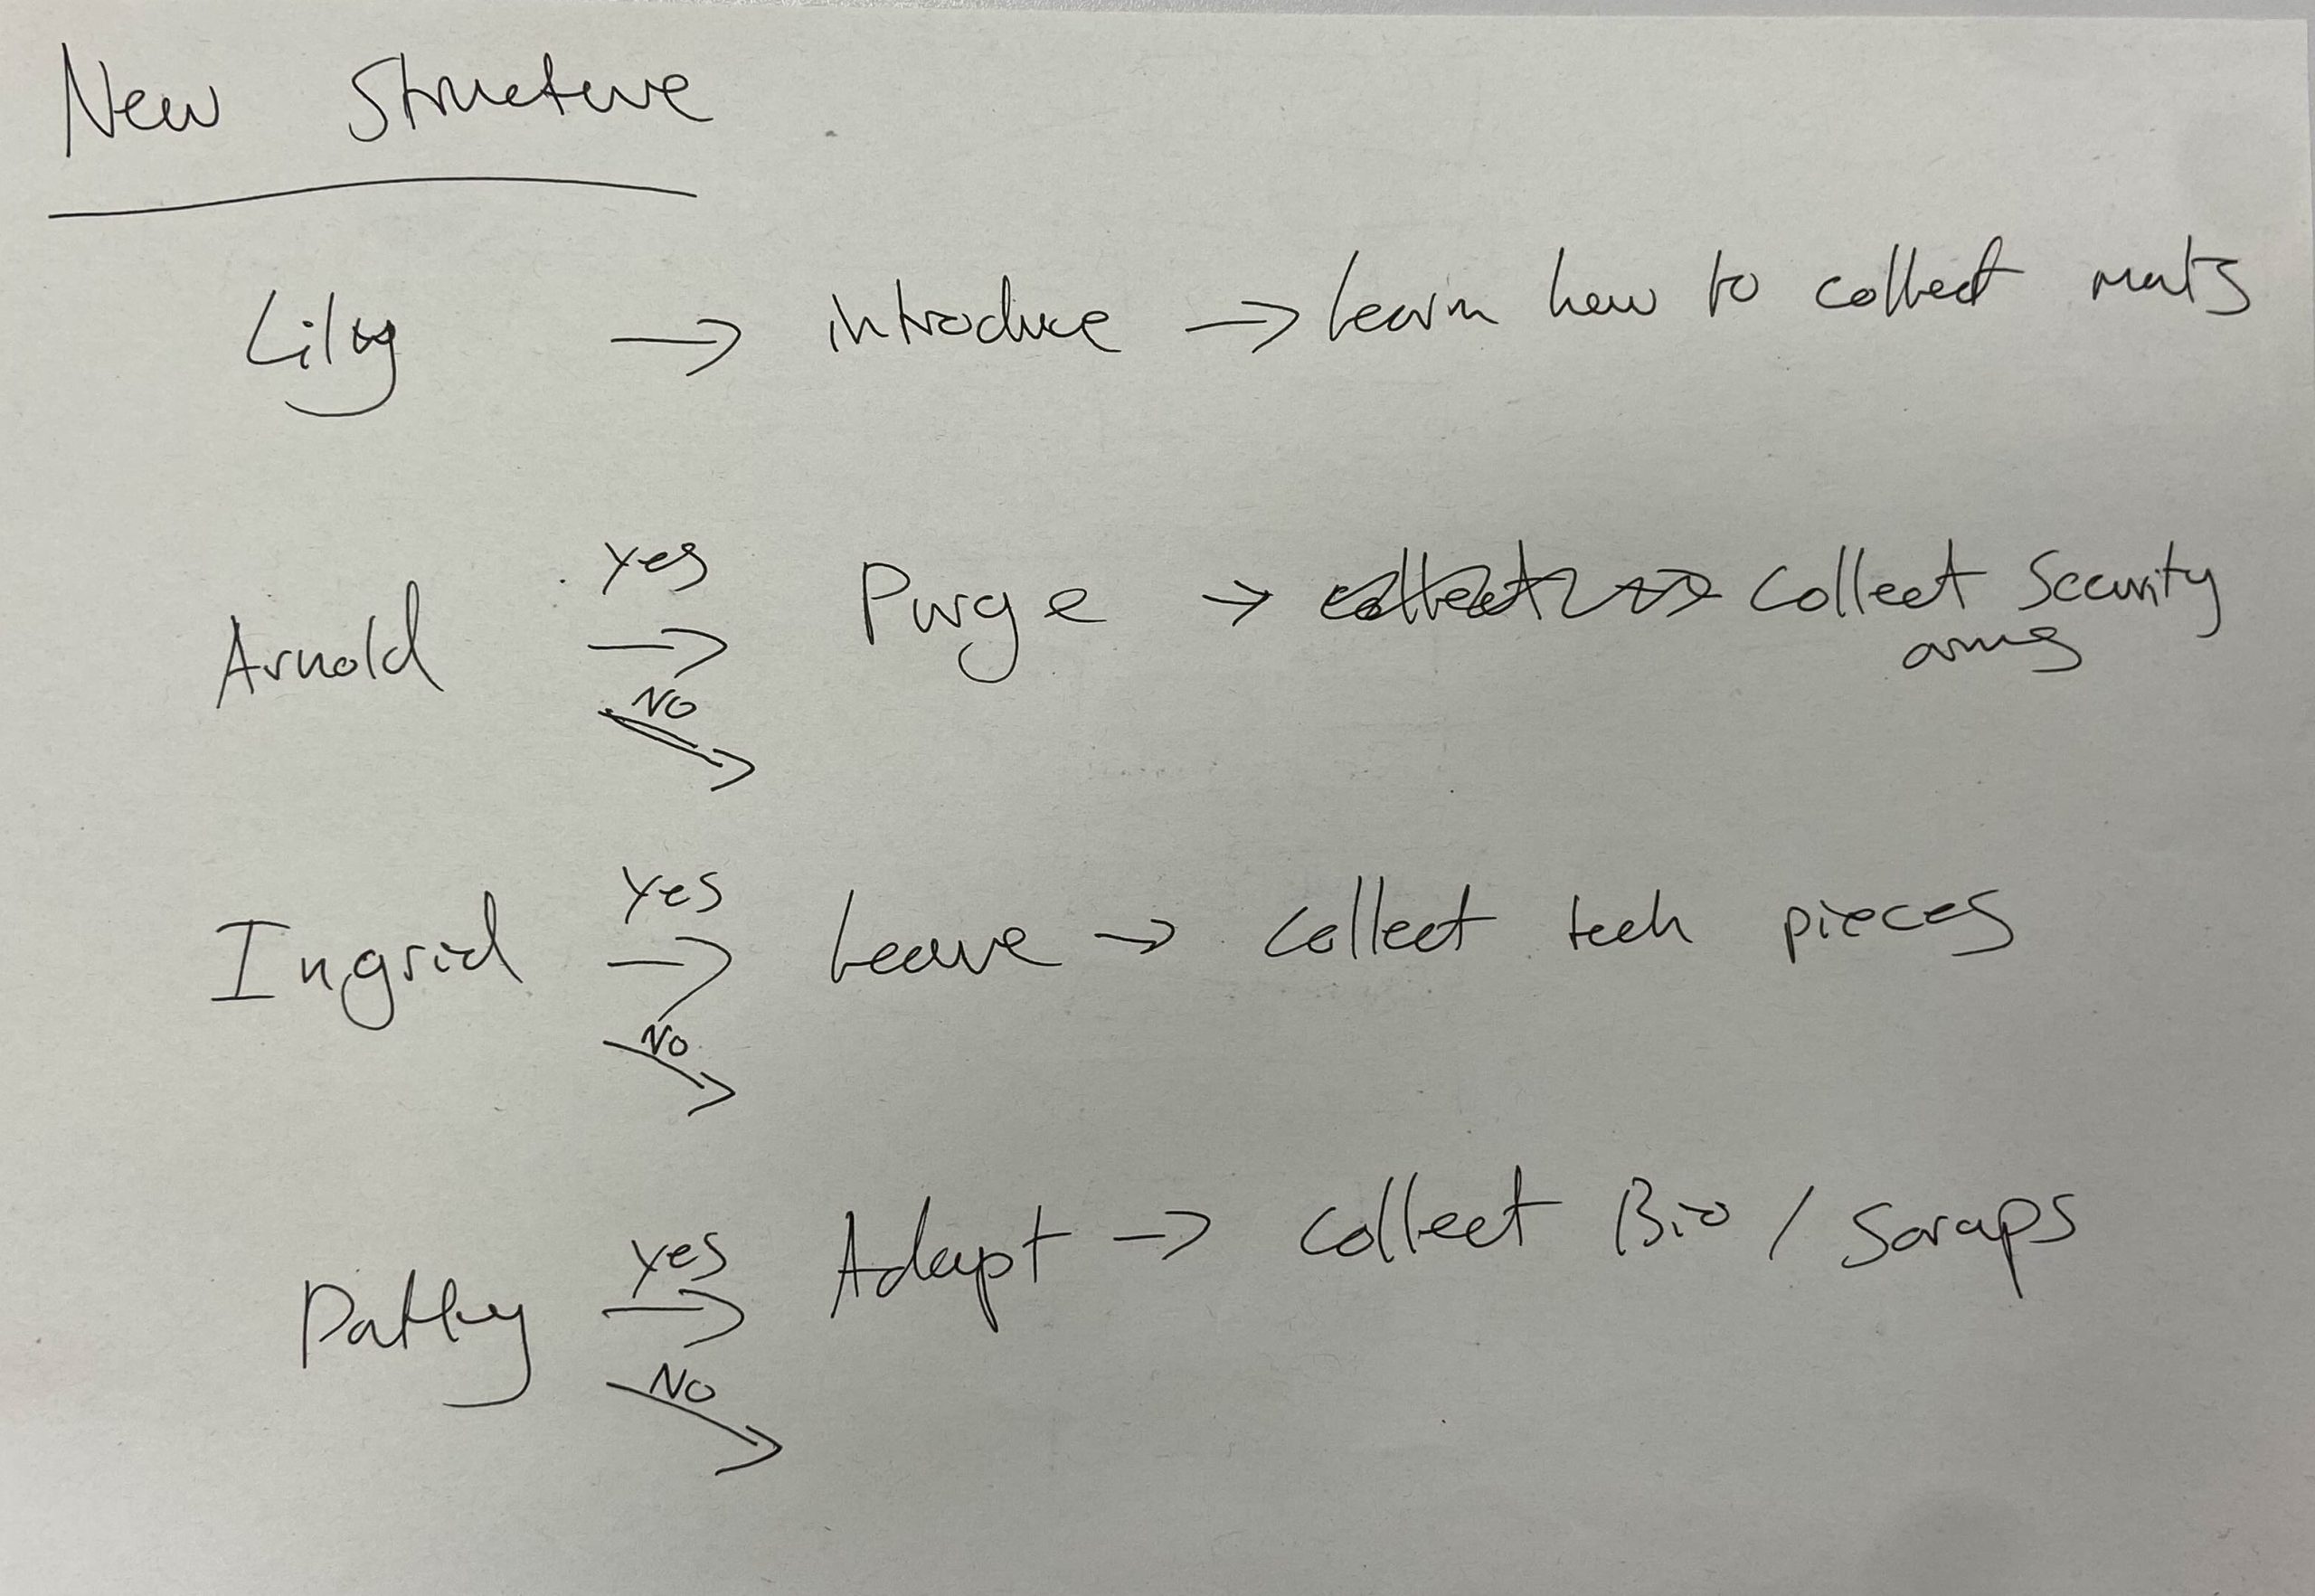 New Structure
Lily → introduce → learn how to collect mats
Yes
Arnold → Purge → collect Security
arms
NO
Yes
Ingrid → Leave → collect tech pieces
NO
Yes
Pathy → Adapt → collect Bio / Scraps
NO